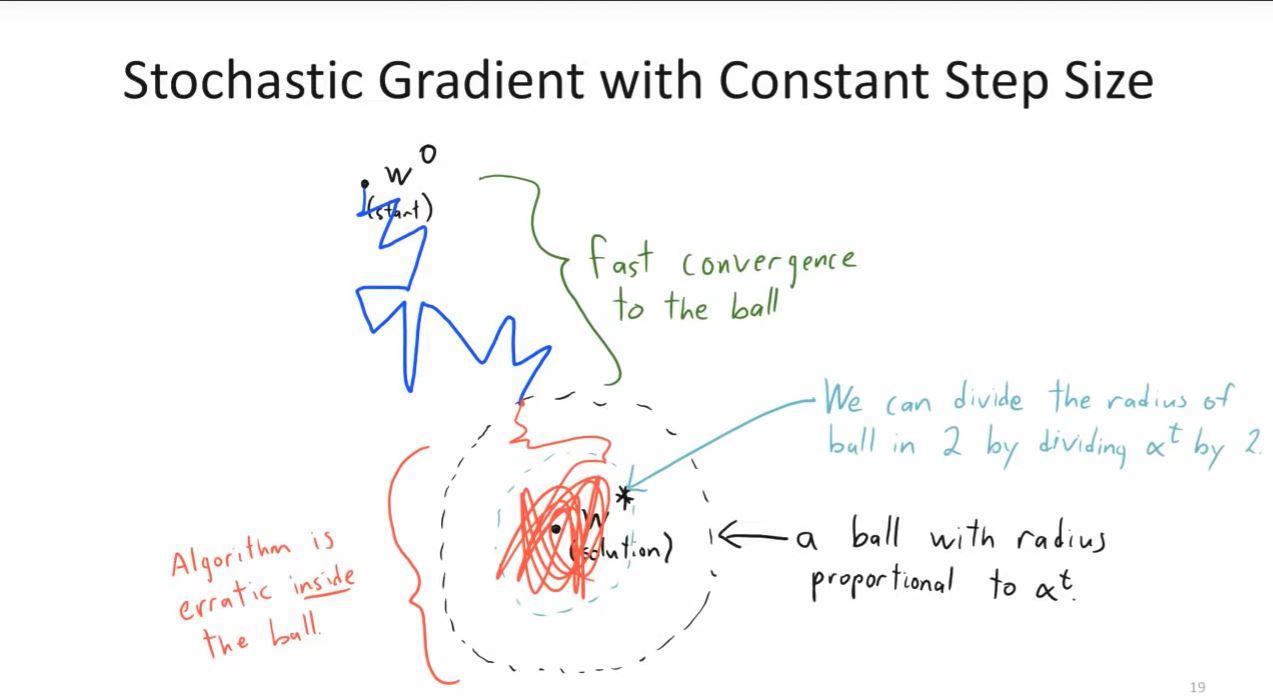 Stochastic Gradient with Constant Step Size
w⁰
(start)
fast convergence
to the ball
We can divide the radius of
ball in 2 by dividing αᵗ by 2.
w*
(solution)
a ball with radius
proportional to αᵗ.
Algorithm is
erratic inside
the ball.
19